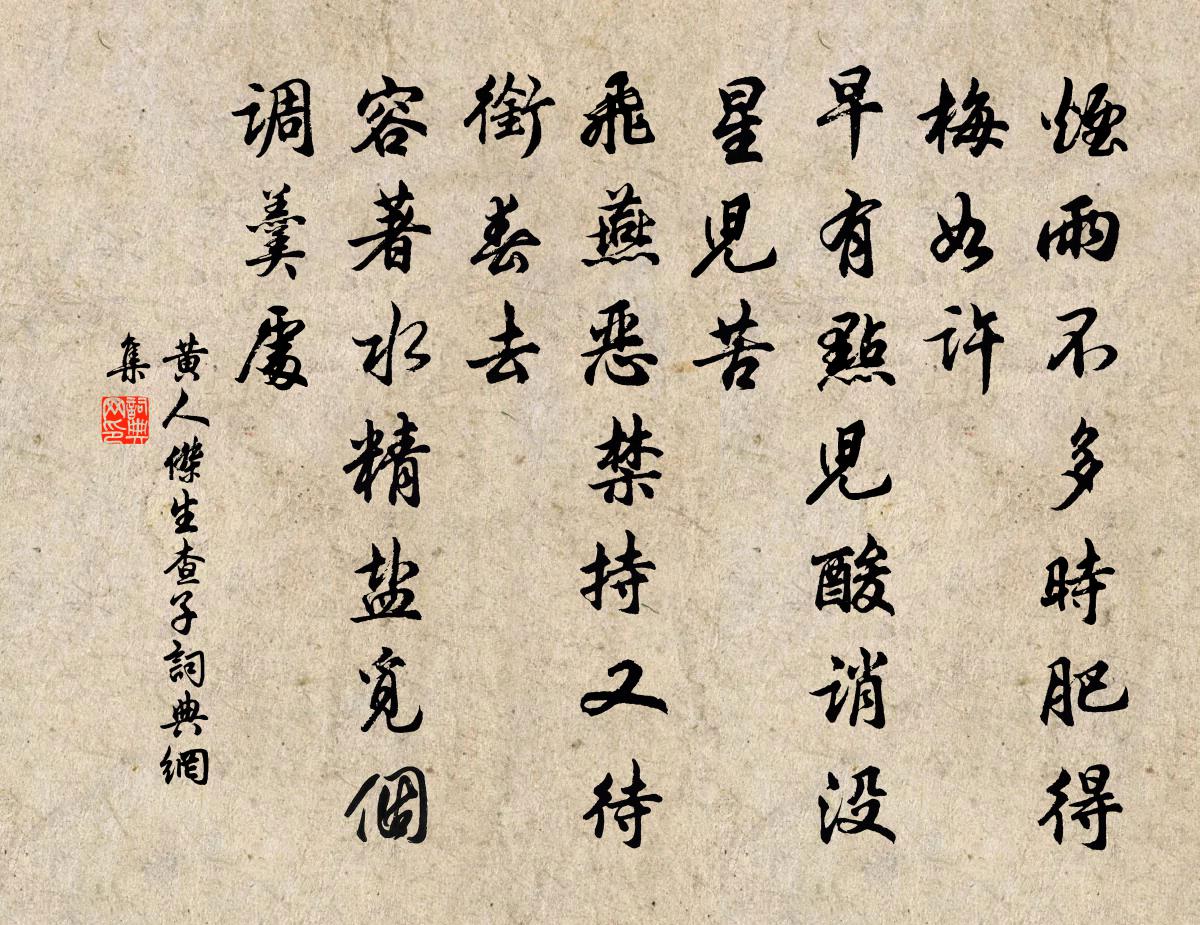 煙雨不多時肥得
梅如許
早有點兒酸誚沒
星兒苦
飛燕惡禁持又待
銜春去
容著水精盐覓個
调羹處
黄人傑生查子詞典網
集
詞典
网印